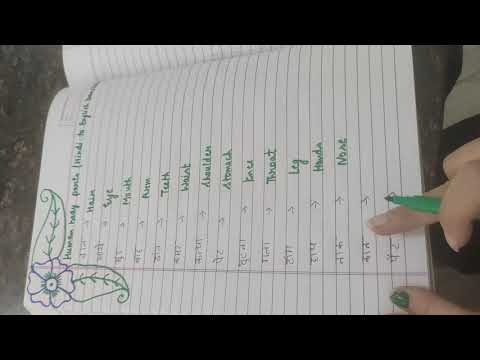 Human body parts (Hindi to English
बाल → Hair
आंखें → Eye
मुंह → Mouth
बांह → Arm
दांत → Teeth
कमर → Waist
कन्धा → Shoulder
पेट → Stomach
घुटना → Knee
गला → Throat
टांग → Leg
हाथ → Hands
नाक → Nose
कान →
पैर →